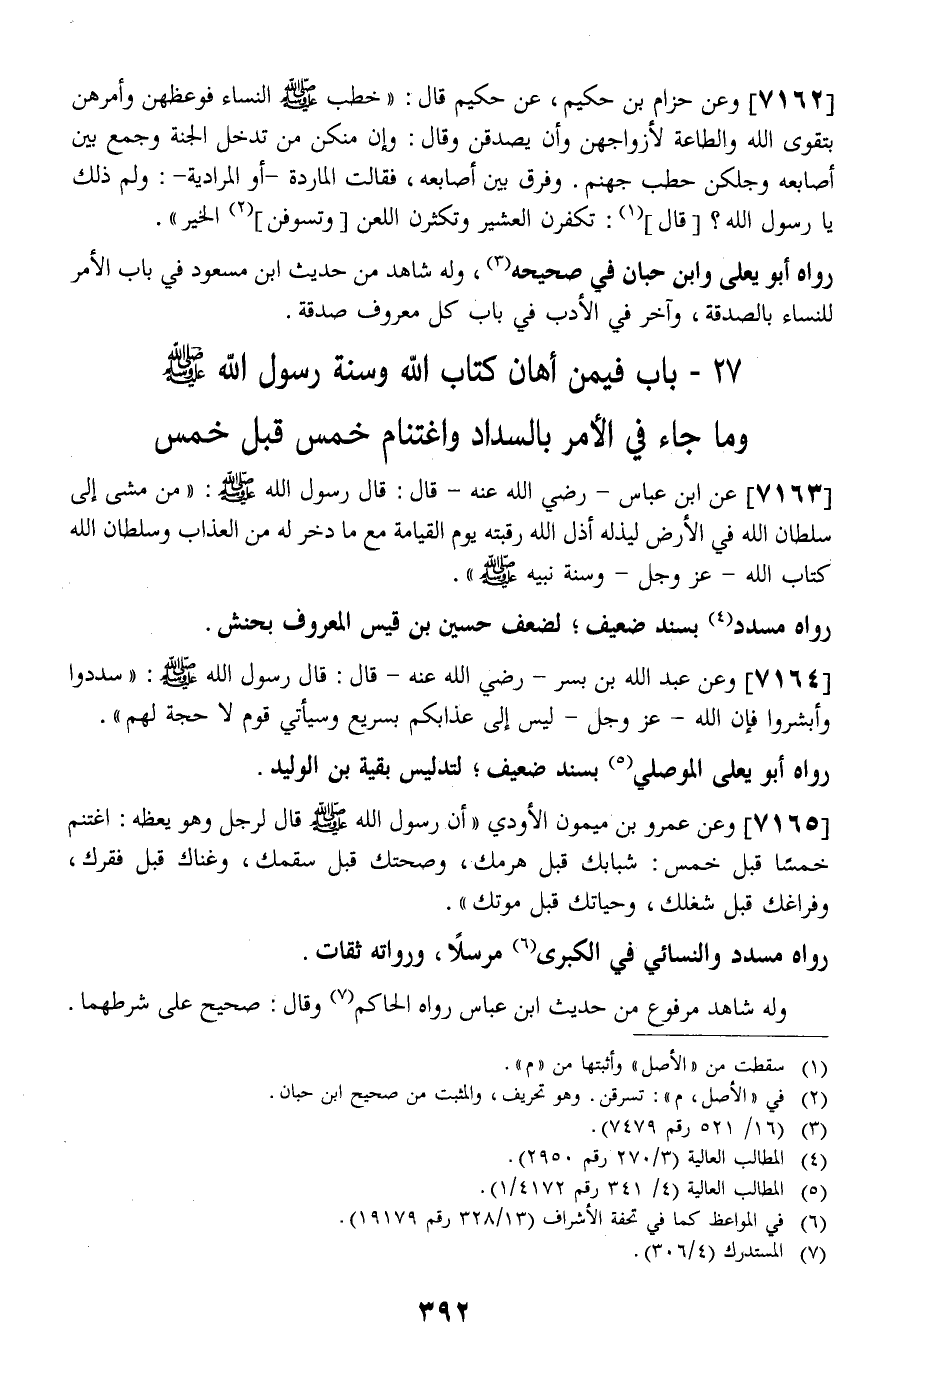 [٧١٦٢] وعن حزام بن حكيم ، عن حكيم قال : « خطب ﷺ النساء فوعظهن وأمرهن
بتقوى الله والطاعة لأزواجهن وأن يصدقن وقال : وإن منكن من تدخل الجنة وجمع بين
أصابعه وجلكن حطب جهنم . وفرق بين أصابعه ، فقالت الماردة -أو المرادية- : ولم ذلك
يا رسول الله ؟ [ قال ](١) : تكفرن العشير وتكثرن اللعن [ وتسوفن ](٢) الخير » .
رواه أبو يعلى وابن حبان في صحيحه(٣) ، وله شاهد من حديث ابن مسعود في باب الأمر
للنساء بالصدقة ، وآخر في الأدب في باب كل معروف صدقة .
٢٧ - باب فيمن أهان كتاب الله وسنة رسول الله ﷺ
وما جاء في الأمر بالسداد واغتنام خمس قبل خمس
[٧١٦٣] عن ابن عباس - رضي الله عنه - قال : قال رسول الله ﷺ : « من مشى إلى
سلطان الله في الأرض ليذله أذل الله رقبته يوم القيامة مع ما دخر له من العذاب وسلطان الله
كتاب الله - عز وجل - وسنة نبيه ﷺ » .
رواه مسدد(٤) بسند ضعيف ؛ لضعف حسين بن قيس المعروف بحنش .
[٧١٦٤] وعن عبد الله بن بسر - رضي الله عنه - قال : قال رسول الله ﷺ : « سددوا
وأبشروا فإن الله - عز وجل - ليس إلى عذابكم بسريع وسيأتي قوم لا حجة لهم» .
رواه أبو يعلى الموصلي(٥) بسند ضعيف ؛ لتدليس بقية بن الوليد .
[٧١٦٥] وعن عمرو بن ميمون الأودي « أن رسول الله ﷺ قال لرجل وهو يعظه : اغتنم
خمسًا قبل خمس : شبابك قبل هرمك ، وصحتك قبل سقمك ، وغناك قبل فقرك ،
وفراغك قبل شغلك ، وحياتك قبل موتك » .
رواه مسدد والنسائي في الكبرى(٦) مرسلًا ، ورواته ثقات .
وله شاهد مرفوع من حديث ابن عباس رواه الحاكم(٧) وقال : صحيح على شرطهما .
(١) سقطت من «الأصل» وأثبتها من «م» .
(٢) في «الأصل ، م» : تسرقن . وهو تحريف ، والمثبت من صحيح ابن حبان .
(٣) (١٦/ ٥٢١ رقم ٧٤٧٩).
(٤) المطالب العالية (٢٧٠/٣ رقم ٢٩٥٠).
(٥) المطالب العالية (٤/ ٣٤١ رقم ١/٤١٧٢).
(٦) في المواعظ كما في تحفة الأشراف (٣٢٨/١٣ رقم ١٩١٧٩).
(٧) المستدرك (٣٠٦/٤) .
٣٩٢